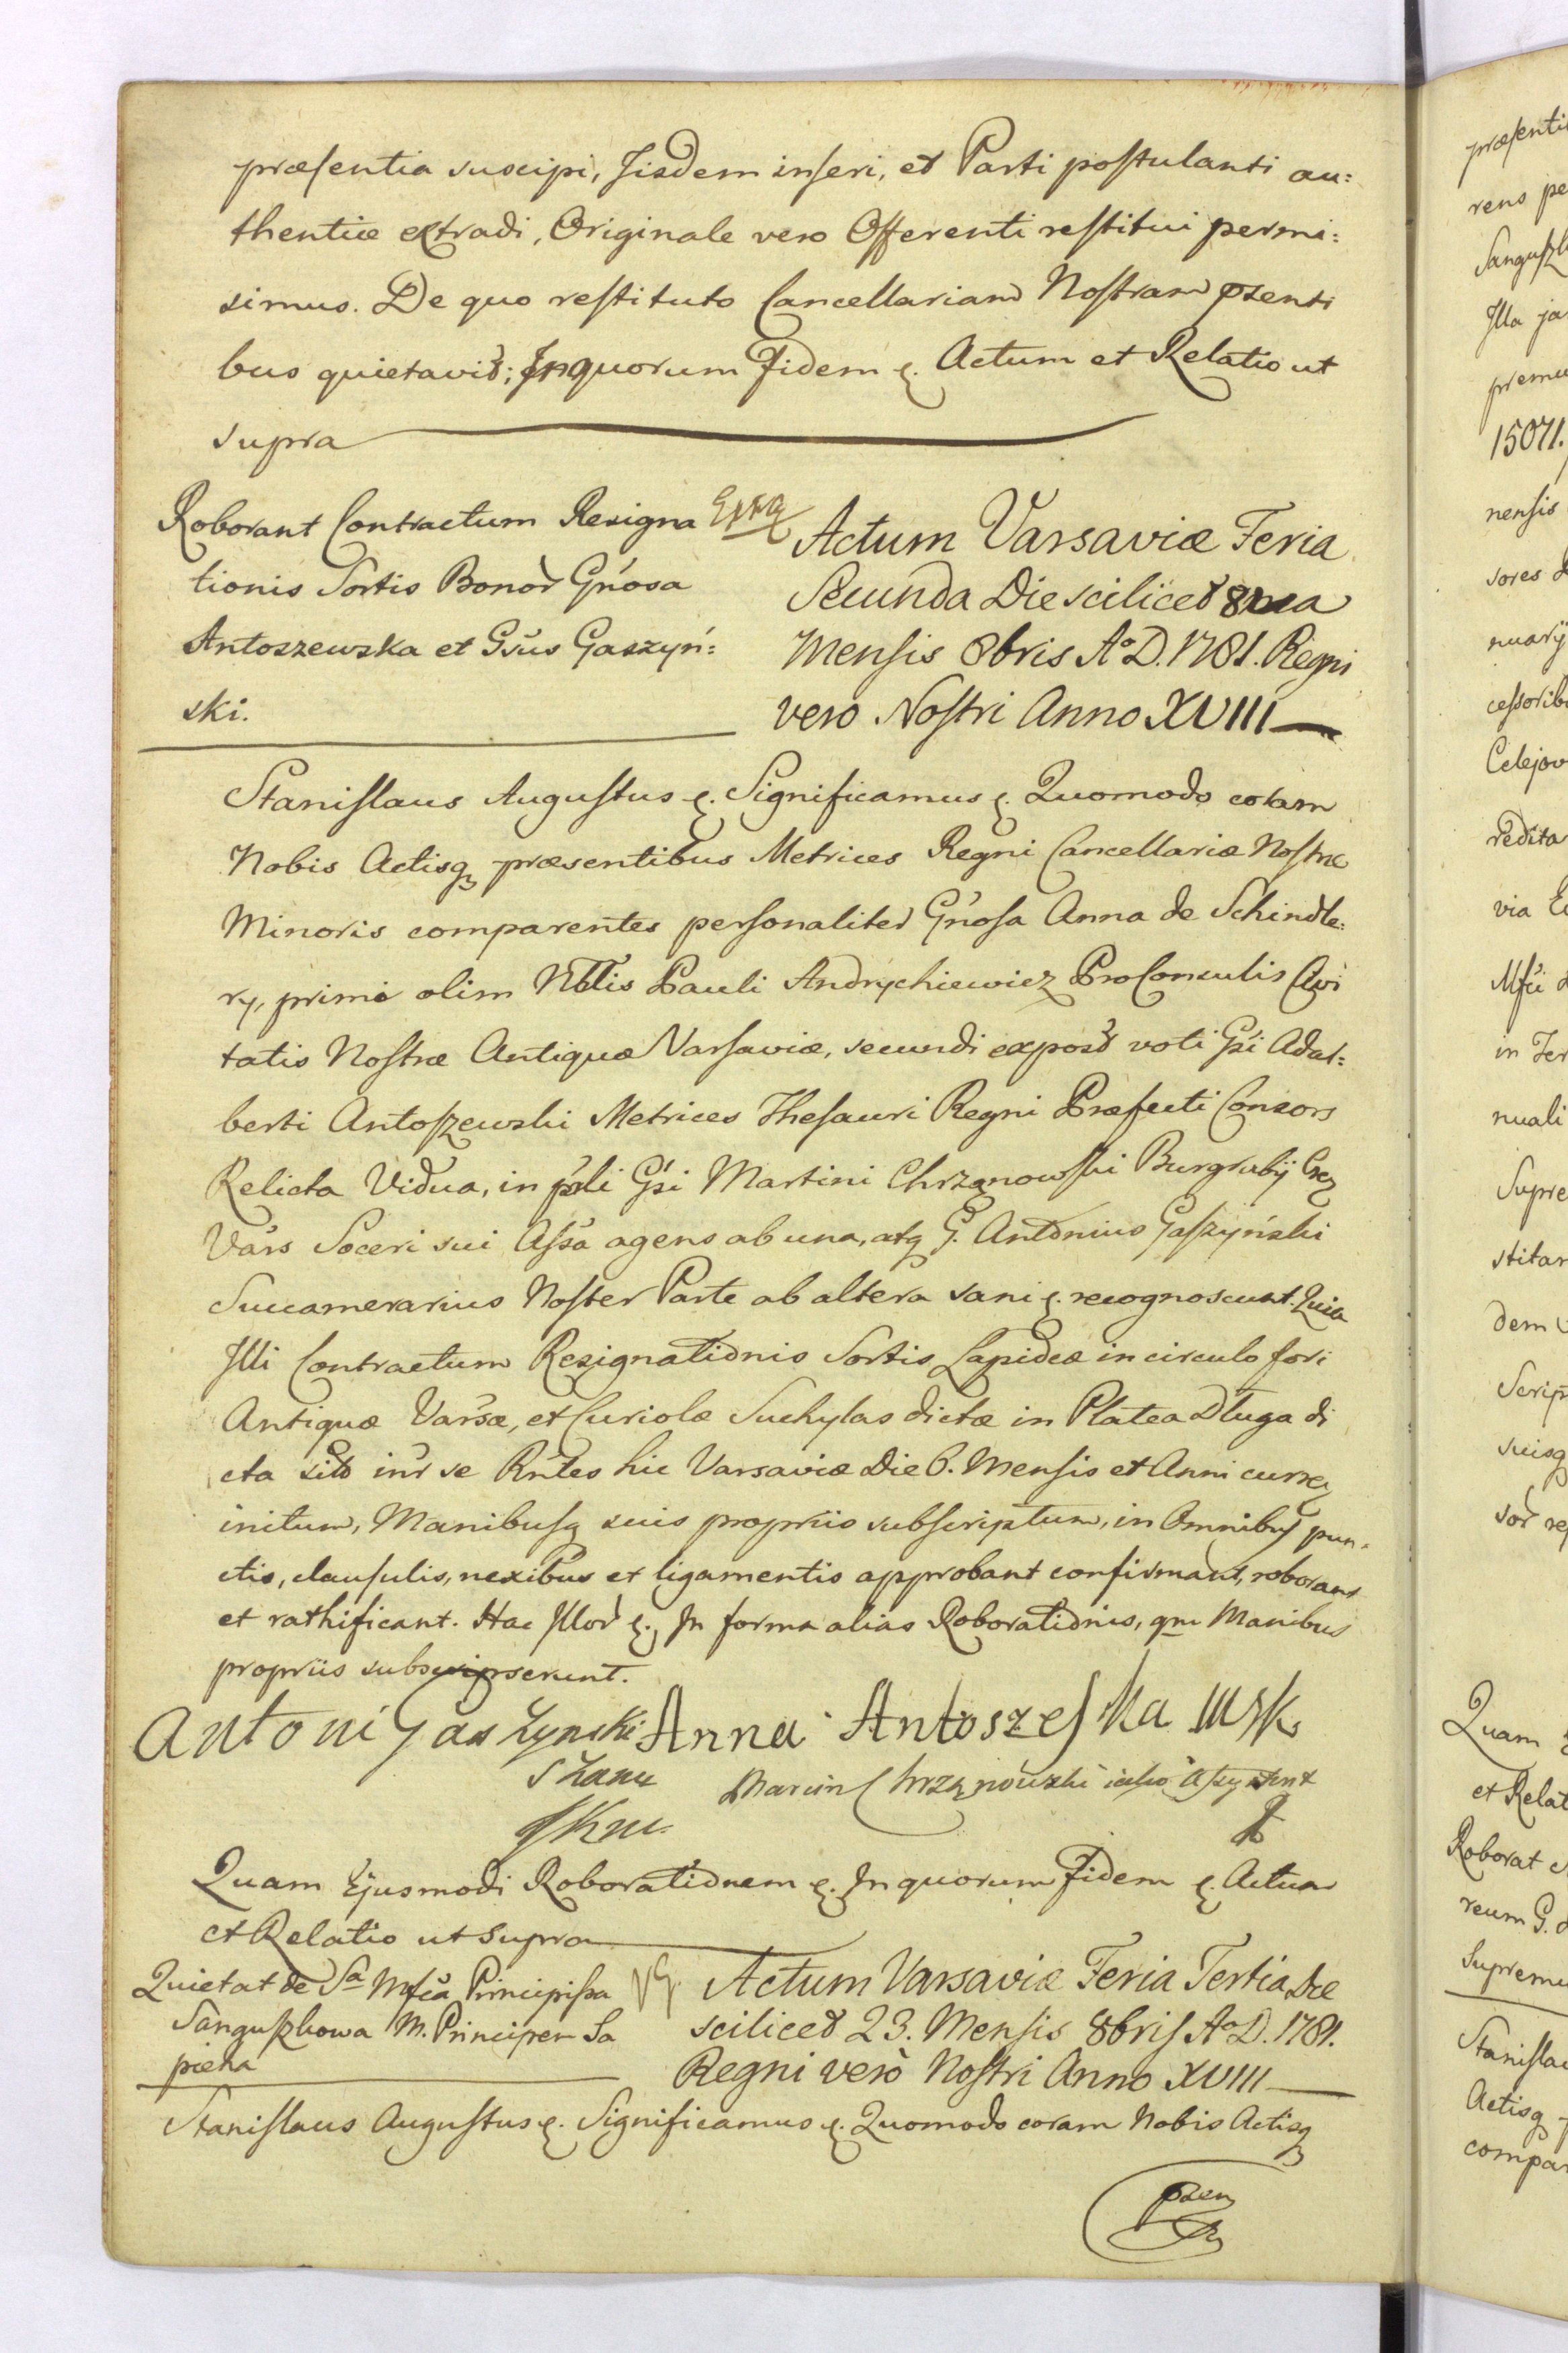 præsentia suscipi, Iisdem inseri, et Parti postulanti au:
thentice extradi, Originale vero Offerenti restitui permi:
simus. De quo restituto Cancellariam Nostram psenti
bus quietavit; In quorum Fidem &. Actum et Relatio ut
supra
Roborant Contractum Resigna
tionis Sortis Bonor Gnosa
Antoszewska et Gsus Gaszyń:
ski.
Actum Varsaviæ Feria
Secunda Die scilicet 8va
Mensis 8bris A°D. 1781. Regni
vero Nostri Anno XVIII
Stanislaus Augustus &. Significamus &. Quomodo coram
Nobis Actisq præsentibus Metrices Regni Cancellariæ Nostræ
Minoris comparentes personaliter Gnosa Anna de Schindle:
ry, primo olim Nblis Pauli Andrychiewicz ProConsulis Civi
tatis Nostræ Antiquæ Varsaviæ, secundi expost voti Gsi Adal:
berti Antoszewski Metrices Thesauri Regni Præfecti Consors
Relicta Vidua, in psli Gsi Martini Chrzanowski Burgrabij
Vars Soceri sui Assa agens ab una, atq G. Antonius Gaszyński
Succamerarius Noster Parte ab altera sani &. recognoscunt. Quia
Illi Contractum Resignationis Sortis Lapideæ in circulo fori
Antiquæ Varsæ, et Curiolæ Suchylas dictæ in Platea Długa di
cta sit inr se Rntes hic Varsaviæ Die 6. Mensis et Anni curren
initum, Manibusq suis propriis subscriptum, in Omnibus pun:
ctis, clausulis, nexibus et ligamentis approbant confirmant, roborant
et rathificant. Hac Illor &. In forma alias Roborationis, qm Manibus
propriis subscripserunt.
Antoni Gaszynski Anna Antoszeska
Marcin Chrzanowski iako Asystent
Quam Ejusmodi Roborationem &. In quorum Fidem &. Actum
et Relatio ut supra
Quietat de Sa Mfica Principissa
Sanguszkowa M. Principem Sa
pieha
Actum Varsaviæ Feria Tertia Die
scilicet 23. Mensis 8bris A°D. 1781.
Regni vero Nostri Anno XVIII
Stanislaus Augustus &. Significamus &. Quomodo coram Nobis Actisq
psen